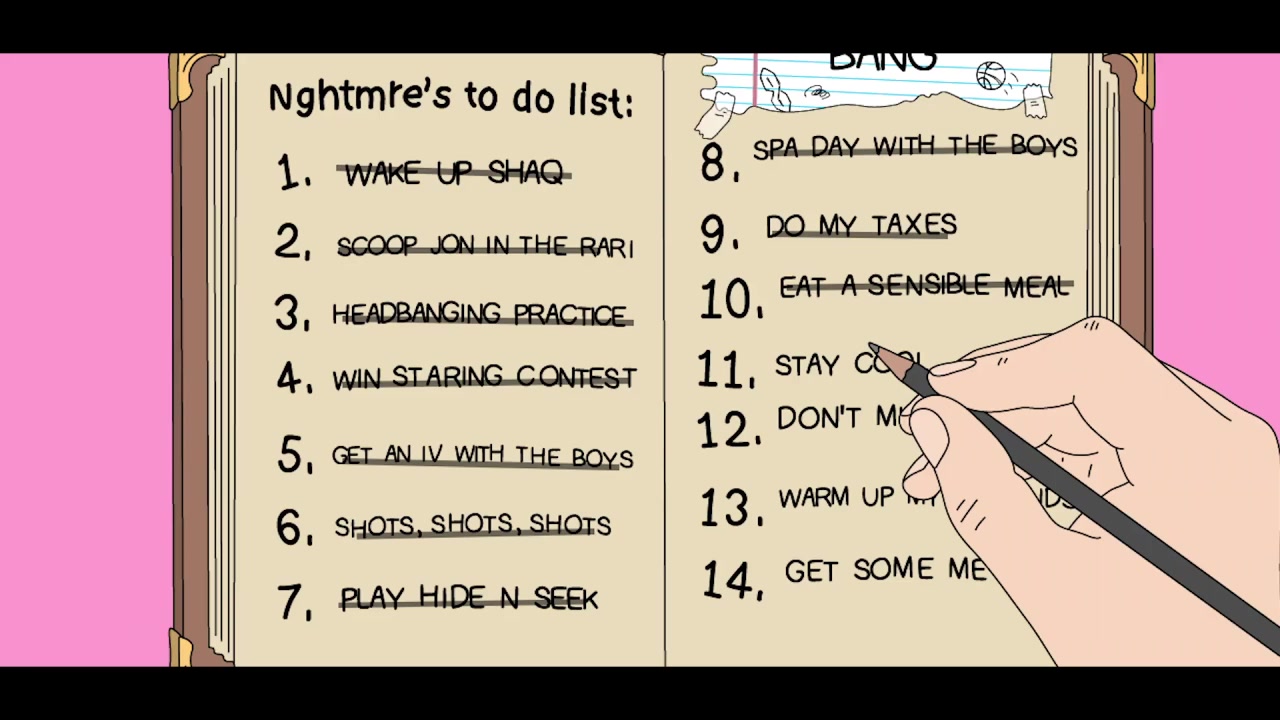 Nghtmre's to do list:
1. WAKE UP SHAQ
2. SCOOP JON IN THE RARI
3. HEADBANGING PRACTICE
4. WIN STARING CONTEST
5. GET AN IV WITH THE BOYS
6. SHOTS, SHOTS, SHOTS
7. PLAY HIDE N SEEK
BANG
8. SPA DAY WITH THE BOYS
9. DO MY TAXES
10. EAT A SENSIBLE MEAL
11. STAY COOL
12. DON'T
13. WARM UP
14. GET SOME